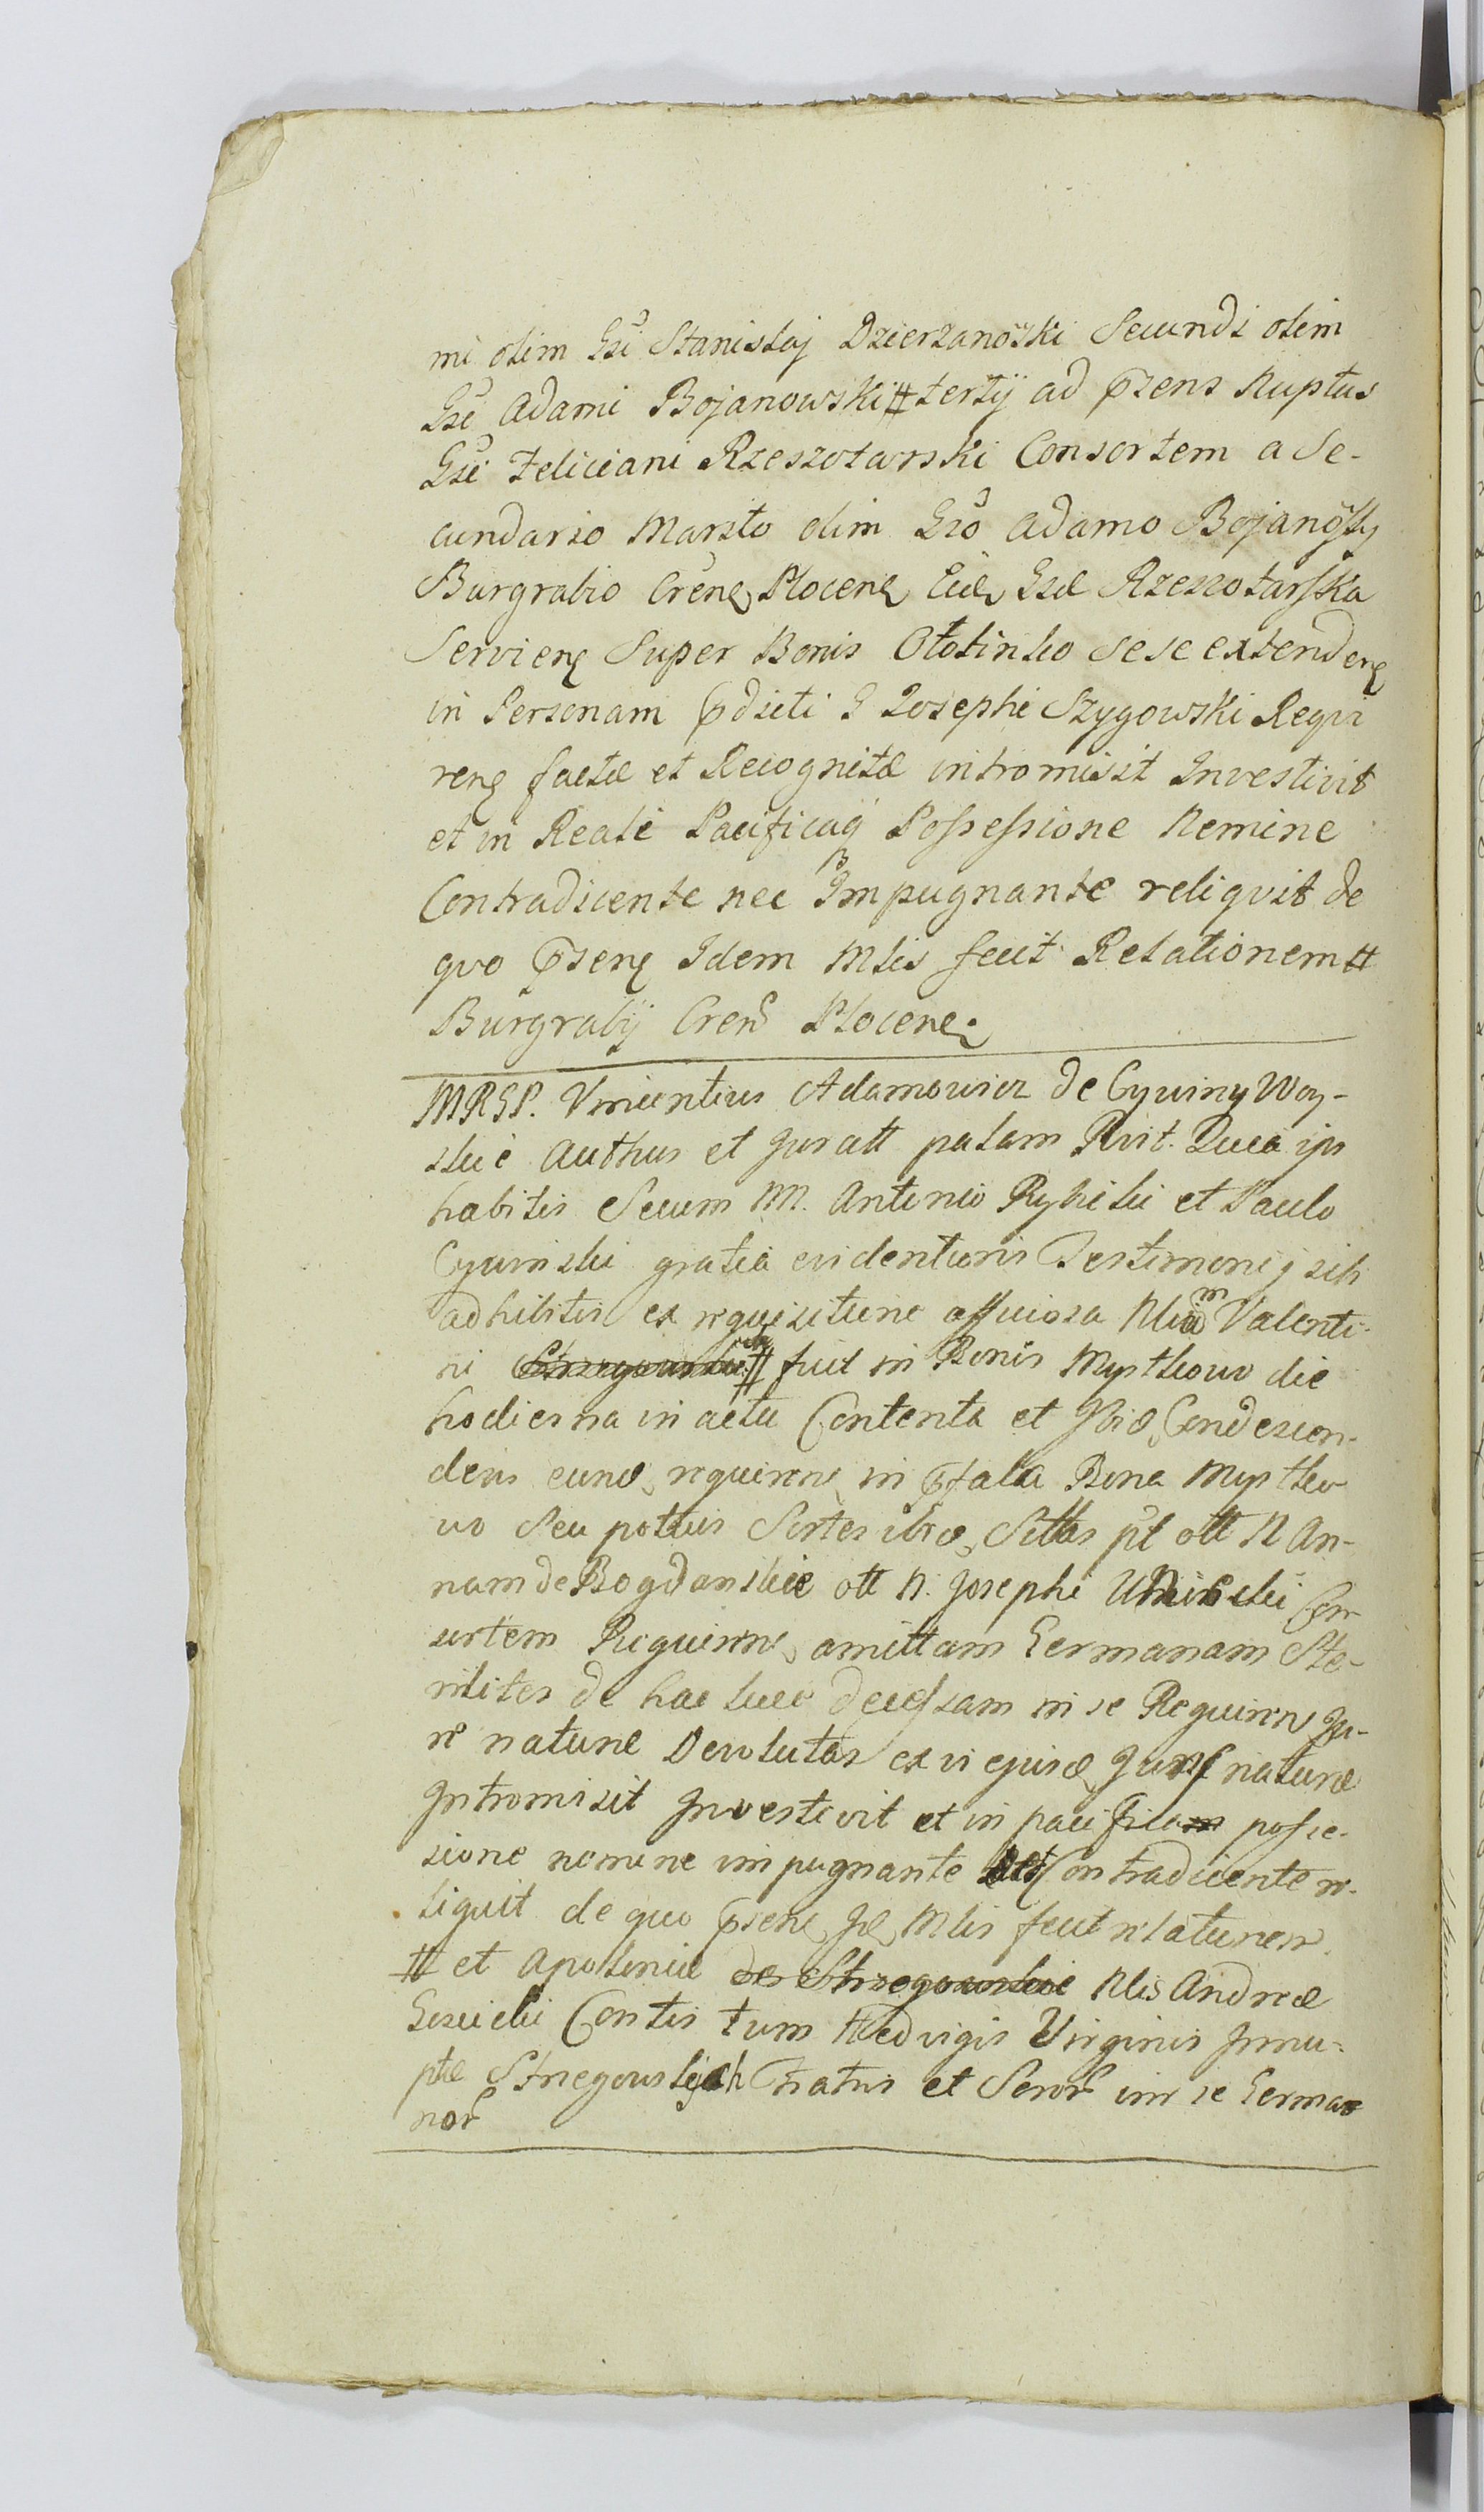 mi olim Gsi Stanislaj Dzierzanowski Secundi olim
Gsi Adami Bojanowski # tertij ad pzens Nuptus
Gsi Feliciani Rzeszotarski Consortem a Se-
cundario Marito olim Gso Adamo Bojanosky
Burgrabio Crenę Plocenę Gsæ Rzeszotarska
Servienę Super Bonis Ołotinko sese extendenę
in Personam pdicti G Josephi Szygowski Requi
renę factæ et Recognitæ intromisit Investivit
et in Reali Pacificaq Possessione Nemine
Contradicente nec Impugnante reliqvit de
qvo pzenę Idem Mlis fecit Relationem #
Burgrabij Cren Plocenę.
MRGP. Vincentius Adamowicz de Cywiny Woy-
skie Authus et Juratt palam Rvit. Quia ips
habitis Secum M. Antonio Rykiski et Paulo
Cywinski gratia evidentioris Testimonij sib
adhibitis ex requisitione affuiosa Nlium Valenti-
ni # fuit in Bonis Mystkowo die
hodierna in actu Contenta et Ibid Condescen-
dens eund requirene in pfala Bona Mystko
wo Seu potius Sortes ibid Sittas pt ott N An-
nam de Bogdanskie ott N. Josephi Uminski Con
sortem Requirene amittam Germanam Ste-
riliter de hac luce decessam in se Requirene Ju-
re naturæ Devolutas ex vi ejusd Juris naturæ
Intromisit Investivit et in pacifica posse-
sione nemine impugnante Contradicente re-
liquit de quo psene Id Mlis fecit relationem.
# et Apoloniæ de Strzegowskie Nlis Andreæ
Gosicki Contis tum Hedvigis Virginis Innu-
ptæ Strzegowskich Fratris et Soror inr se Germa
nor